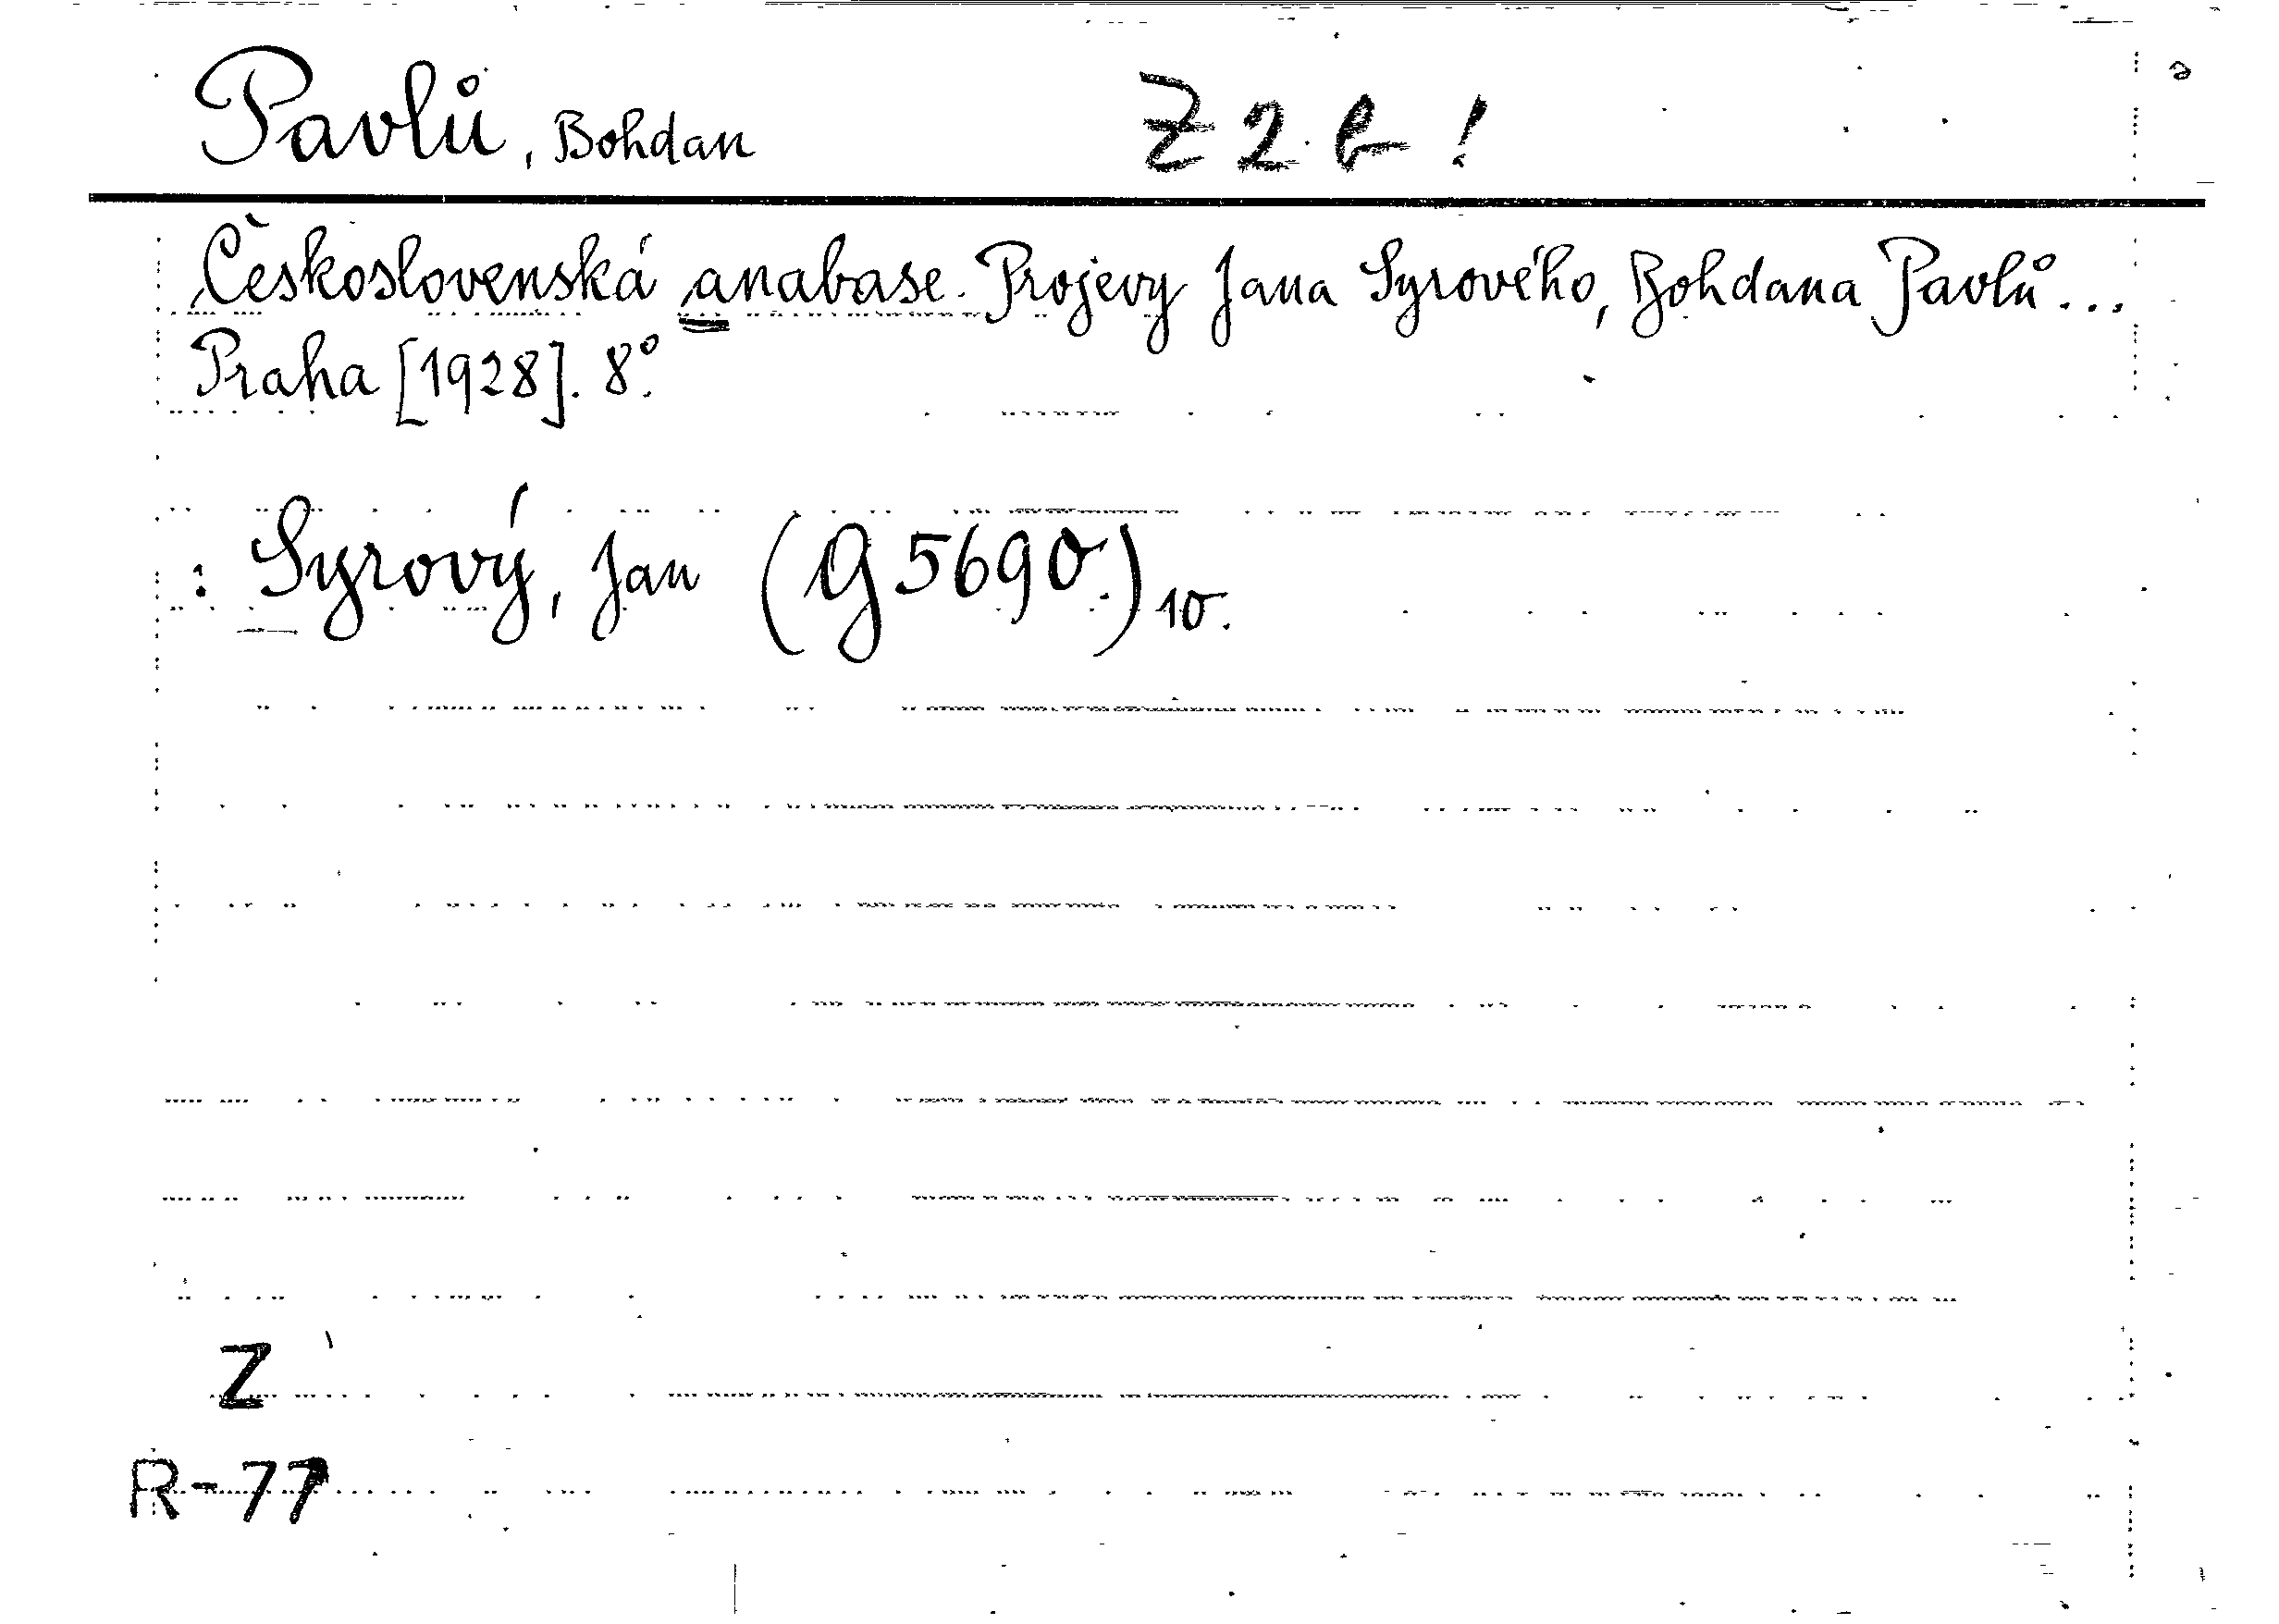 Pavlů, Bohdan Z 2 b !
Československá anabase. Projevy Jana Syrového, Bohdana Pavlů...
Praha [1928]. 8°.
: Syrový, Jan (G 5690.) 10.
Z
R-77